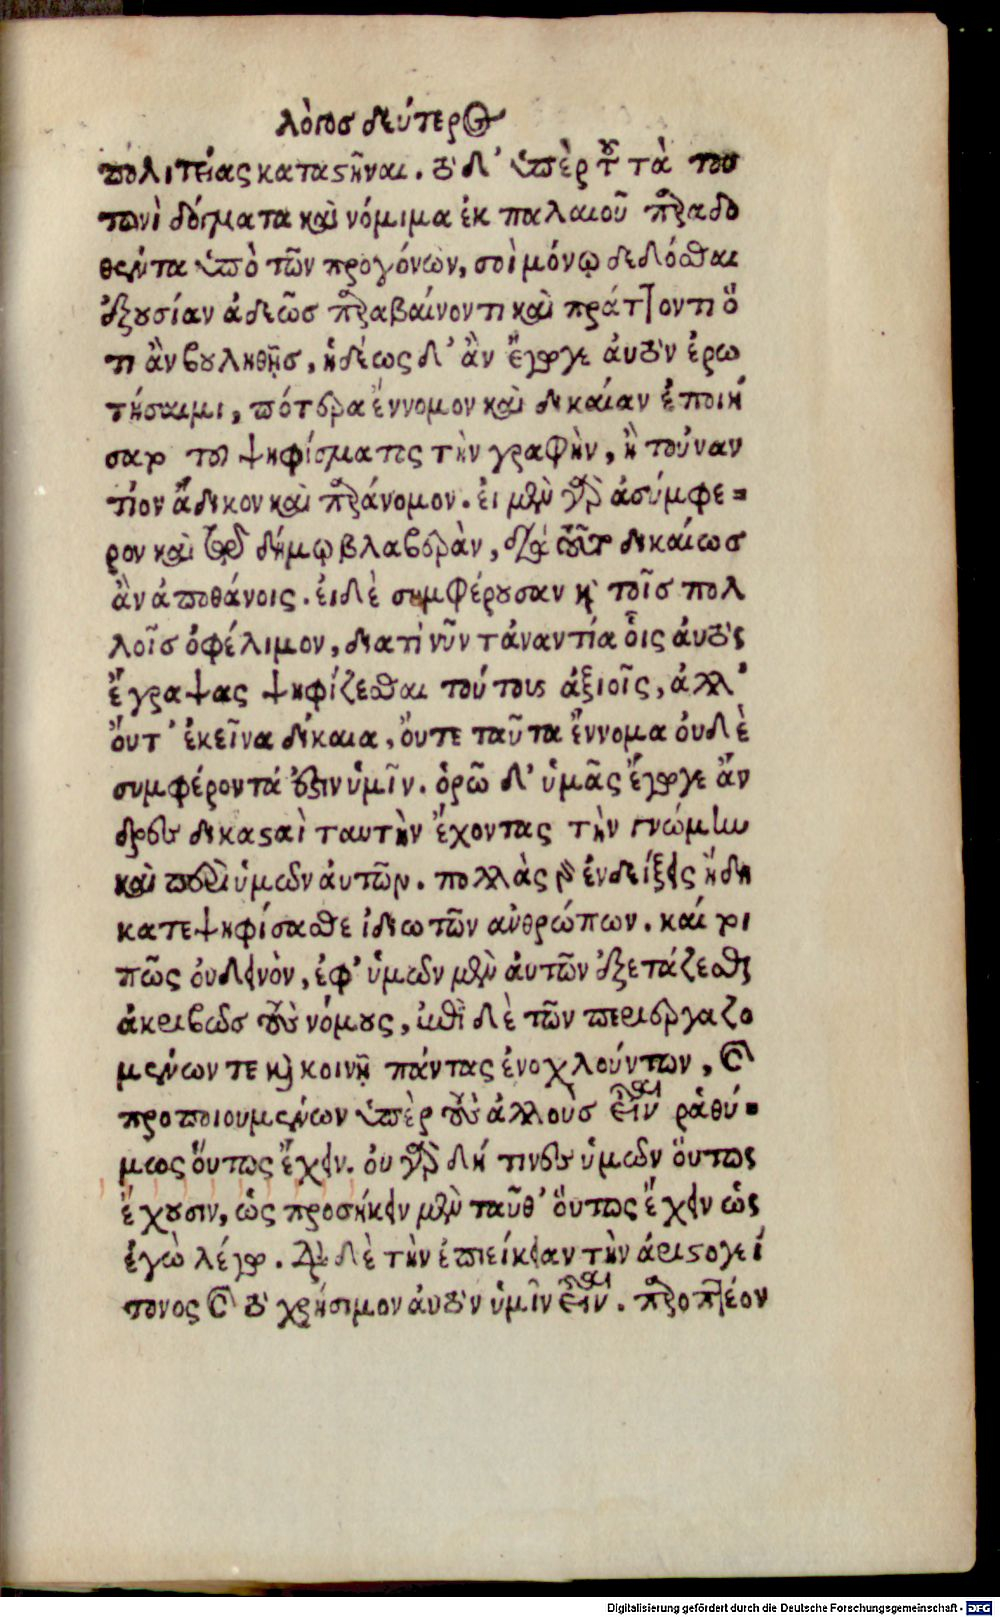 λόγος δεύτερος
πολιτείας καταστῆναι. οὐδ' ὑπὲρ τοῦ τὰ τουσ
τωνὶ δόγματα καὶ νόμιμα ἐκ παλαιοῦ παραδο
θέντα ὑπὸ τῶν προγόνων, σοὶ μόνῳ δεδόσθαι
ἐξουσίαν ἀδεῶς παραβαίνοντι καὶ πράττοντι ὅ
τι ἂν βουληθῇς, ἡδέως δ' ἂν ἔγωγε ἀυτὸν ἐρω
τήσαιμι, πότερα ἔννομον καὶ δικαίαν ἐποιή
σαο του ψηφίσματος τὴν γραφὴν, ἢ τοὐναν
τίον ἄδικον καὶ παράνομον. ἐι μὲν γὰρ ἀσύμφε-
ρον καὶ τῷ δήμῳ βλαβερὰν, διὰ τοῦτο δικαίως
ἂν ἀποθάνοις. ἐι δὲ συμφέρουσαν καὶ τοῖς πολ
λοῖς ὀφέλιμον, διατί νῦν τἀναντία οἷς ἀυτὸς
ἔγραψας ψηφίζεσθαι τούτους ἀξιοῖς, ἀλλ'
ὄυτ' ἐκεῖνα δίκαια, ὄυτε ταῦτα ἔννομα ὀυδὲ
συμφέροντά ἐστιν ὑμῖν. ὁρῶ δ' ὑμᾶς ἔγωγε ἄν
δρες δικασαὶ ταυτὴν ἔχοντας τὴν γνώμην
καὶ περὶ ὑμῶν ἀυτῶν. πολλὰς γὰρ ἐνδείξεις ἤδη
κατεψηφίσασθε ἰδιωτῶν ἀνθρώπων. καίτοι
πῶς ὀυ δεινὸν, ἐφ' ὑμῶν μὲν ἀυτῶν ἐξετάζεσθαι
ἀκριβῶς τοὺς νόμους, ἐπὶ δὲ τῶν περιεργαζο
μένων τε καὶ κοινῇ πάντας ἐνοχλούντων, καὶ
προποιουμένων ὑπὲρ τοὺς ἀλλοὺς εἶναι ῥᾳθύ-
μως ὅυτως ἔχειν. ὀυ γὰρ δή τινες ὑμῶν ὅυτως
ἔχουσιν, ὡς προσήκειν μὲν ταῦθ' ὅυτως ἔχειν ὡς
ἐγὼ λέγω. διὰ δὲ τὴν ἐπιείκειαν τὴν ἀριστογεί
τονος καὶ τὸ χρήσιμον ἀυτὸν ὑμῖν εἶναι. παροπτέον
Digitalisierung gefördert durch die Deutsche Forschungsgemeinschaft - DFG